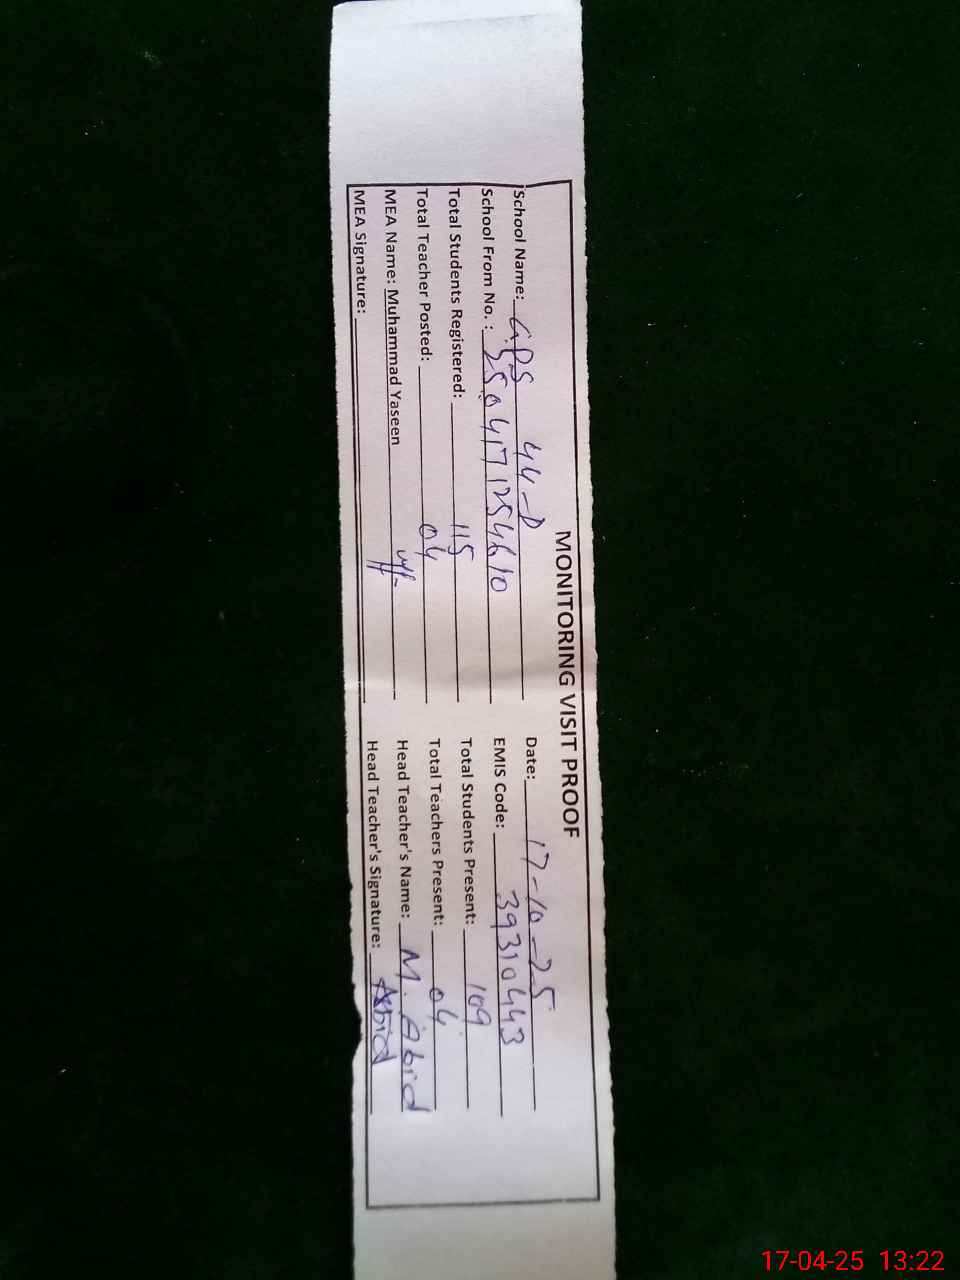 MONITORING VISIT PROOF
School Name: GPS 44-D Date: 17-10-25
School From No. : 2504171254610 EMIS Code: 39310443
Total Students Registered: 115 Total Students Present: 109
Total Teacher Posted: 04 Total Teachers Present: 04
MEA Name: Muhammad Yaseen Head Teacher's Name: M. Abid
MEA Signature: Head Teacher's Signature: Abid
17-04-25 13:22